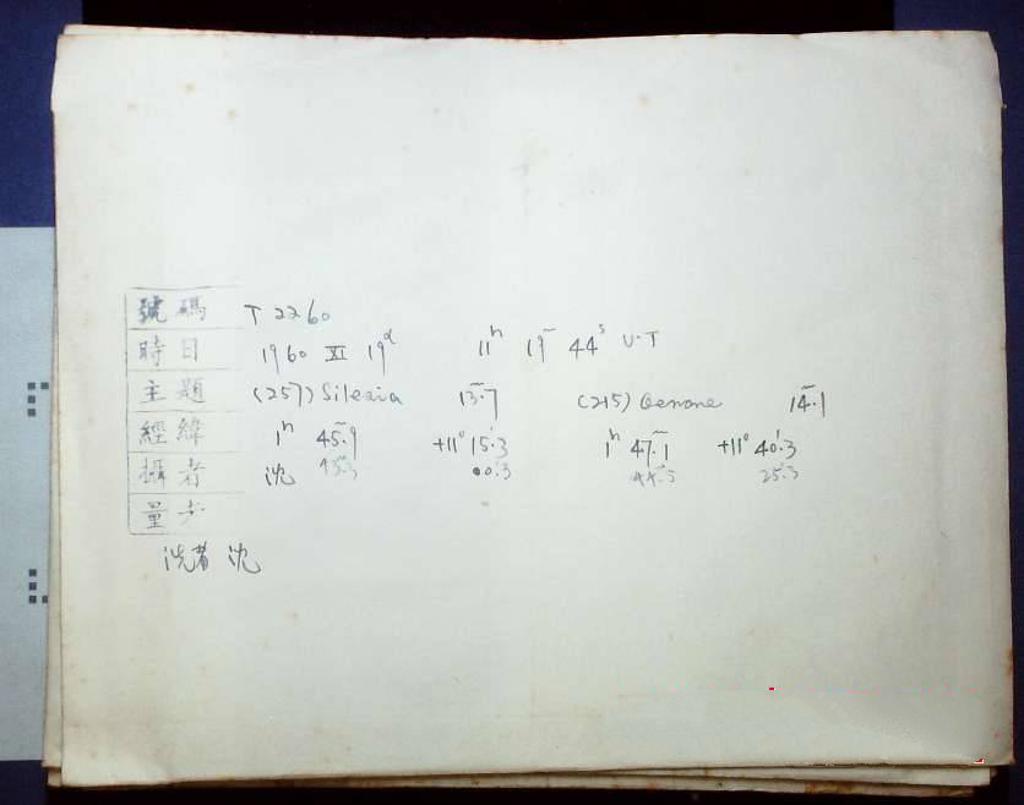 號碼 T 2260
時日 1960 XI 19ᵈ 11ʰ 19ᵐ 44ˢ U.T
主題 (257) Silesia 13ᵐ.7 (215) Oenone 14ᵐ.1
經緯 1ʰ 45ᵐ.9 +11° 15'.3 1ʰ 47ᵐ.1 +11° 40'.3
攝者 沈 43ᵐ.3 00'.3 44ᵐ.5 25'.3
量者
洗者 沈